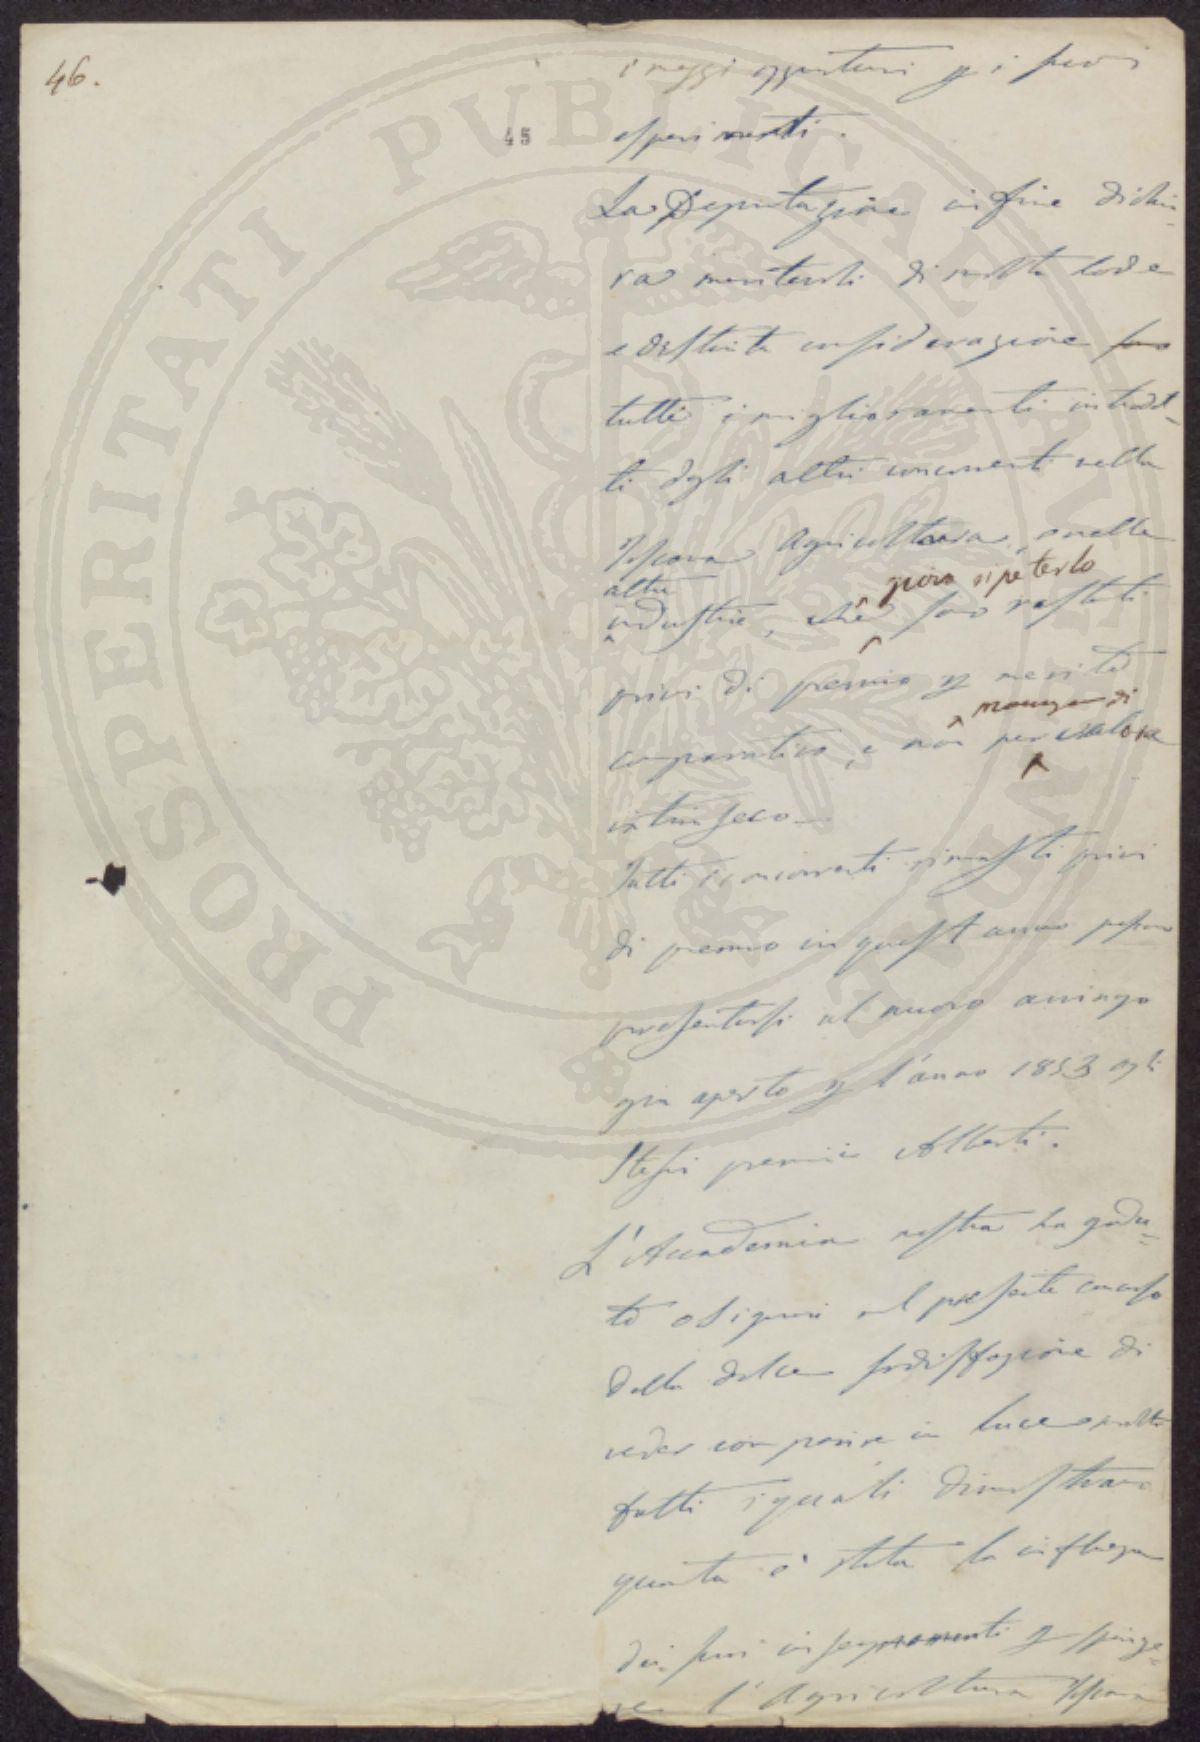 46.
45
i mezzi opportuni p i suoi
esperimenti.
La Deputazione in fine dichia-
ra meritevoli di molta lode
e distinta considerazione
tutti i miglioramenti introdot-
ti dagli altri concorrenti nella
Toscana Agricoltura, e nelle
altre
industrie, che giova ripeterlo son restati
privi di premio p merito
comparativo, e non per mancanza di valore
intrinseco—
Tutti i concorrenti rimasti privi
di premio in quest anno possono
presentarsi al nuovo arringo
già aperto p l'anno 1853 agli
stessi premii Alberti.
L'Accademia nostra ha godu-
to o Signori nel presente concorso
della dolce sodisfazione di
veder comparire in luce molti
fatti i quali dimostrano
quanta è stata la influenza
dei suoi insegnamenti p spinge-
re l'Agricoltura Toscana
PROSPERITATI PUBLICAE